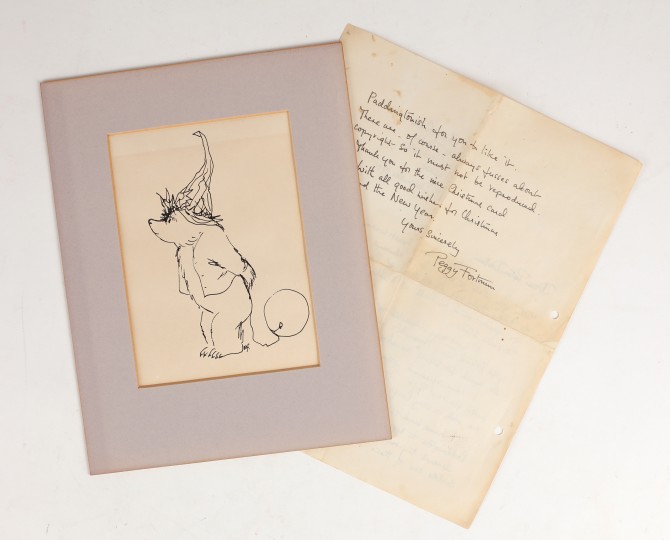 Paddingtonish for you to like it.
There are - of course - always fusses about
copyright - so it must not be reproduced.
Thank you for the nice Christmas card
With all good wishes for Christmas
and the New Year.
Yours Sincerely
Peggy Fortnum